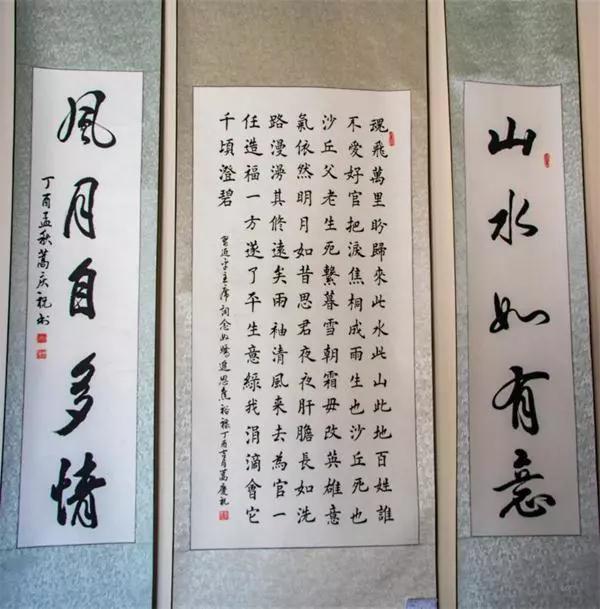 山水如有意
魂飛萬里盼歸來此水此山此地百姓誰
不愛好官把淚焦桐成雨生也沙丘死也
沙丘父老生死繫暮雪朝霜毋改英雄意
氣依然明月如昔思君夜夜肝膽長如洗
路漫漫其修遠矣兩袖清風来去為官一
任造福一方遂了平生意綠我涓滴會它
千頃澄碧
習近平主席詞念奴嬌追思焦裕祿丁酉蒿慶祝
風月自多情
丁酉孟秋蒿庆祝书